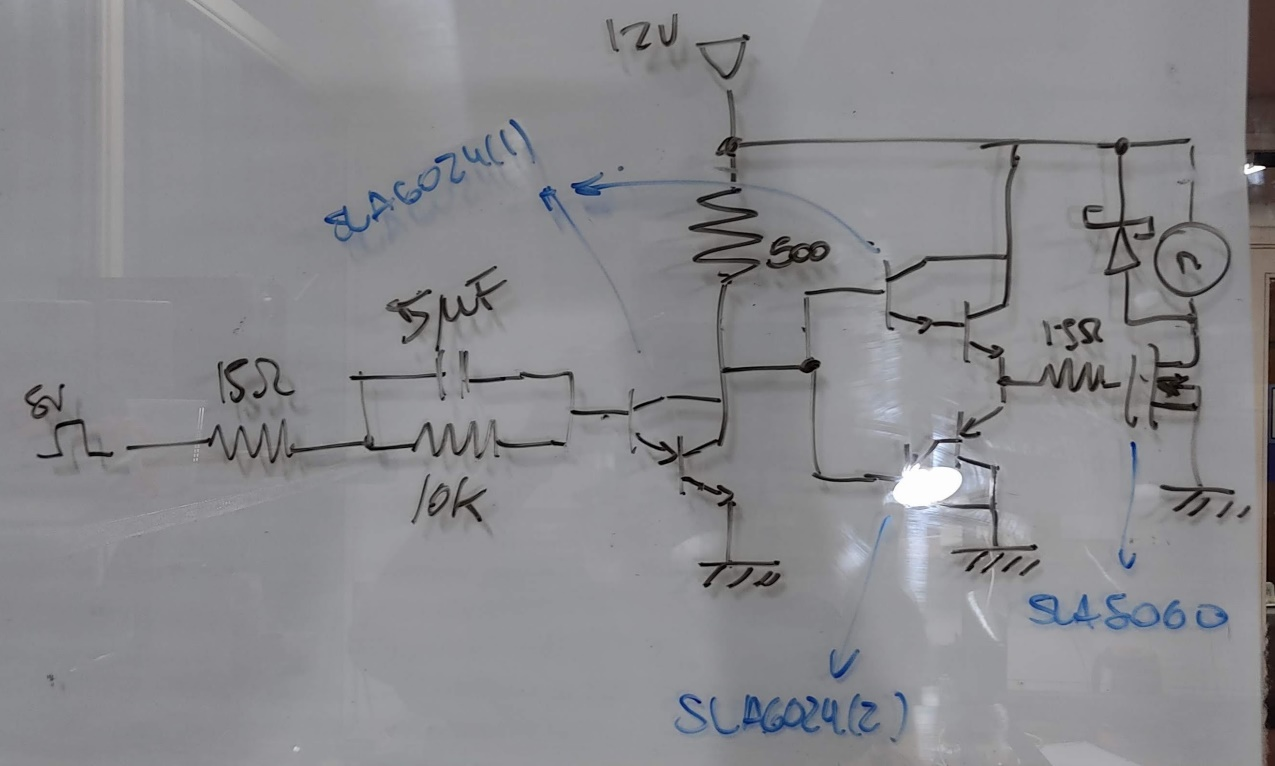 12V
SLA6024(1)
500
5µF
15Ω
1.5Ω
5V
10K
SLA5060
SLA6024(2)